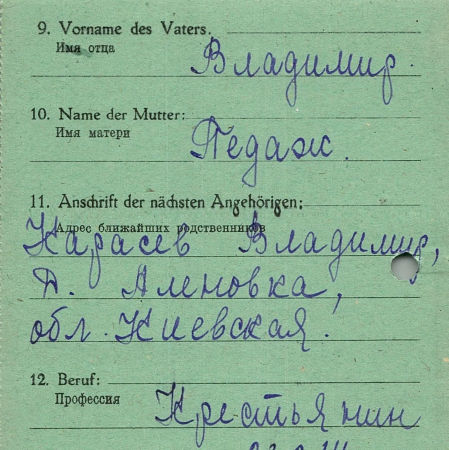 9. Vorname des Vaters.
Имя отца
Владимир.
10. Name der Mutter:
Имя матери
Педаж.
11. Anschrift der nächsten Angehörigen:
Адрес ближайших родственников
Карасев Владимир,
д. Аленовка,
обл. Киевская.
12. Beruf:
Профессия
Крестьянин